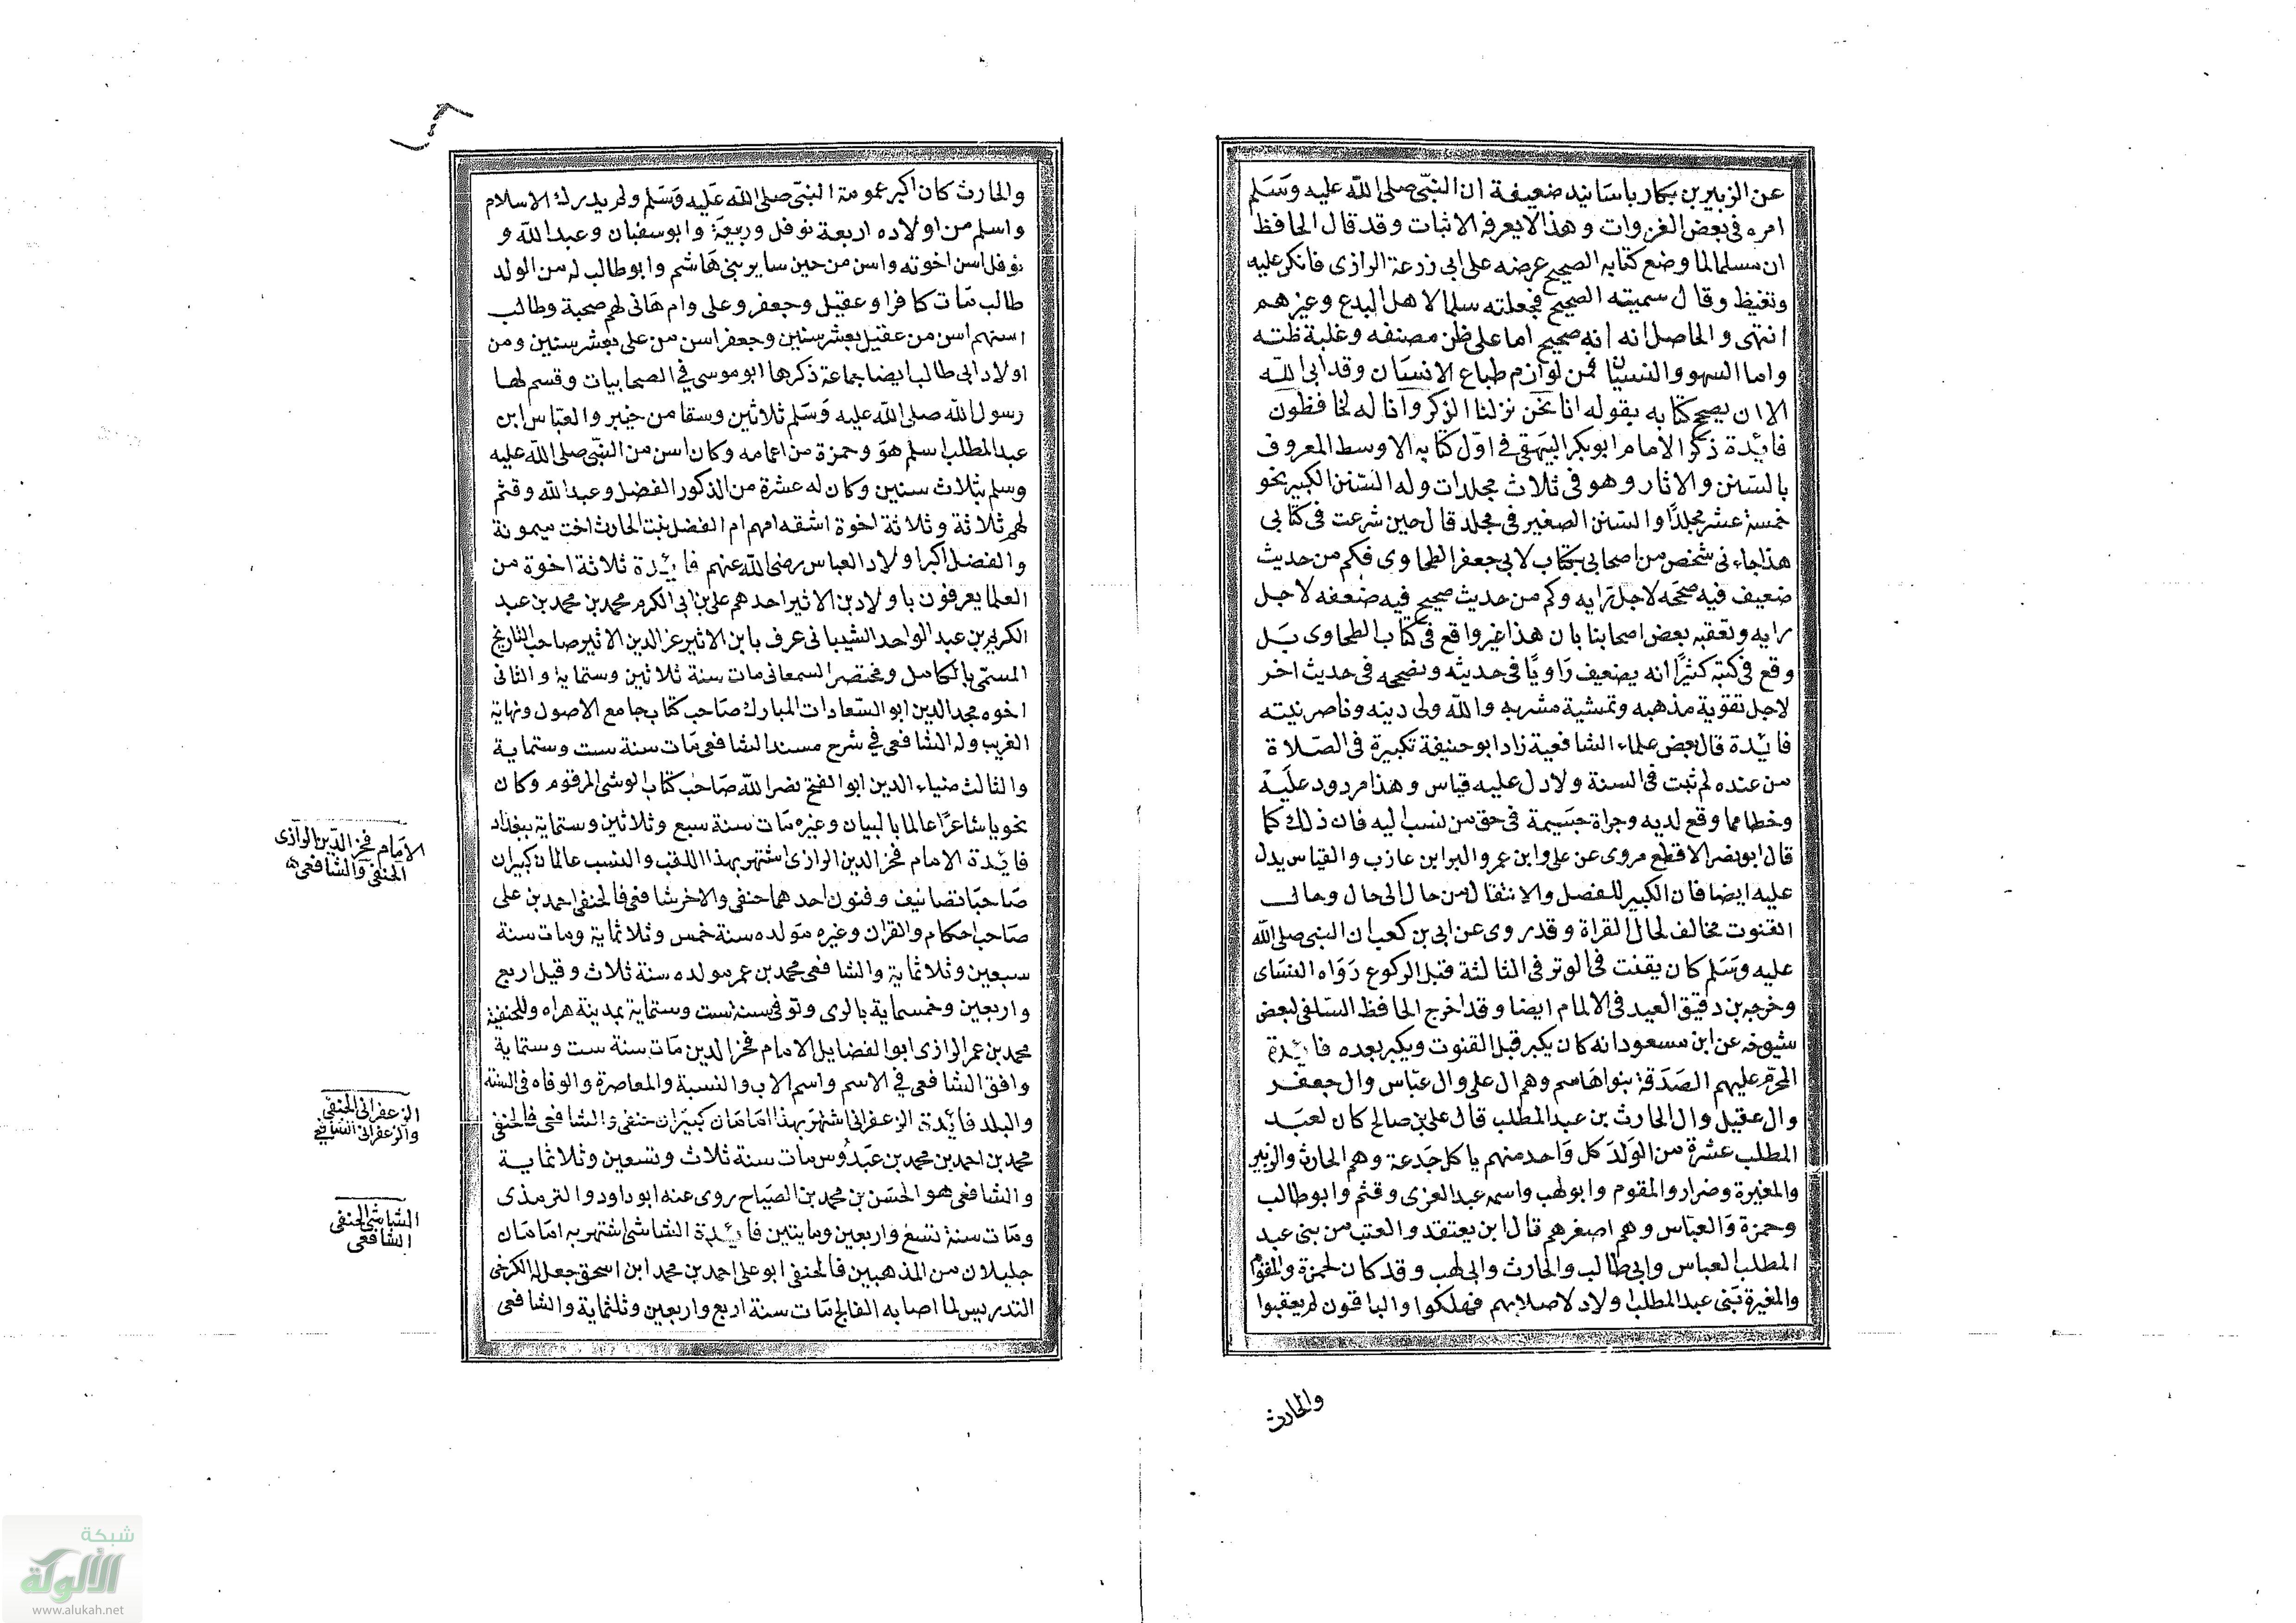 عن الزبير بن بكار باسانيد ضعيفة ان النبي صلى الله عليه وسلم
امره في بعض الغزوات وهذا لا يعرفه الاثبات وقد قال الحافظ
ان مسلما لما وضع كتابه الصحيح عرضه على ابي زرعة الرازي فانكر عليه
وتغيظ وقال سميته الصحيح فجعلته سلما لاهل البدع وغيرهم
انتهى والحاصل انه انه صحيح اما على ظن مصنفه وغلبة ظنه
واما السهو والنسيان فمن لوازم طباع الانسان وقد ابى الله
الا ان يصح كتابه بقوله انا نحن نزلنا الذكر وانا له لحافظون
فايدة ذكر الامام ابو بكر البيهقي في اول كتابه الاوسط المعروف
بالسنن والاثار وهو في ثلاث مجلدات وله السنن الكبير نحو
خمسة عشر مجلدا والسنن الصغير في مجلد قال حين شرعت في كتابي
هذا جاءني شخص من اصحابي بكتاب لابي جعفر الطحاوي فكم من حديث
ضعيف فيه صححه لاجل رايه وكم من حديث صحيح فيه ضعفه لاجل
رايه وتعقبه بعض اصحابنا بان هذا غير واقع في كتاب الطحاوي بل
وقع في كتبه كثيرا انه يضعيف راويا في حديثه ويصححه في حديث اخر
لاجل تقوية مذهبه وتمشية مشربه والله ولي دينه وناصر نبيته
فايدة قال بعض علماء الشافعية زاد ابو حنيفة تكبيرة في الصلاة
من عنده لم ثبت في السنة ولا دل عليه قياس وهذا مردود عليه
وخطا مما وقع لديه وجراة جسيمة في حق من نسب اليه فان ذلك كما
قال ابو نصر الاقطع مروي عن علي وابن عمر والبرا ابن عازب والقياس يدل
عليه ايضا فان الكبير للفصل والانتقال من حال الى حال وحالي
القنوت مخالف لحال القراة وقد روى عن ابي بن كعب ان النبي صلى الله
عليه وسلم كان يقنت في الوتر في الثالثة قبل الركوع رواه النساى
وخرجه بن دقيق العيد في الالمام ايضا وقد اخرج الحافظ السلفي لبعض
شيوخه عن ابن مسعود انه كان يكبر قبل القنوت ويكبر بعده فايدة
المحرم عليهم الصدقة بنوا هاشم وهم ال علي وال عباس وال جعفر
وال عقيل وال الحارث بن عبد المطلب قال علي بن صالح كان لعبد
المطلب عشرة من الولد كل واحد منهم ياكل جدعة وهم الحارث والزبير
والمغيرة وضرار والمقوم وابو لهب واسمه عبد العزى وقثم وابو طالب
وحمزة والعباس وهم اصغرهم قال ابن يعتقد والعتب من بني عبد
المطلب العباس وابي طالب والحارث وابي لهب وقد كان لحمزة والمقوم
والمغيرة بني عبد المطلب اولاد لاصلابهم فهلكوا والباقون لم يعقبوا
والحارث
والحارث كان اكبر عمومة النبي صلى الله عليه وسلم ولم يدرك الاسلام
واسلم من اولاده اربعة نوفل وربيعة وابو سفيان وعبد الله و
نوفل اسن اخوته واسن من حين ساير بني هاشم وابو طالب له من الولد
طالب مات كافرا وعقيل وجعفر وعلي وام هاني لهم صحبة وطالب
اسنهم اسن من عقيل بعشر سنين وجعفر اسن من علي بعشر سنين ومن
اولاد ابي طالب ايضا جماعة ذكرها ابو موسى في الصحابيات وقسم لها
رسول الله صلى الله عليه وسلم ثلاثين وسقا من خيبر والعباس ابن
عبد المطلب اسلم هو وحمزة من اعمامه وكان اسن من النبي صلى الله عليه
وسلم بثلاث سنين وكان له عشرة من الذكور الفضل وعبد الله وقثم
لهم ثلاثة وثلاثة اخوة اشقه امهم ام الفضل بنت الحارث اخت ميمونة
والفضل اكبر اولاد العباس رضى الله عنهم فايدة ثلاثة اخوة من
العلما يعرفون باولاد بن الاثير احدهم علي بن ابي الكرم محمد بن محمد بن عبد
الكريم بن عبد الواحد الشيباني عرف بابن الاثير عز الدين الاثير صاحب التاريخ
المسمى بالكامل ومختصر السمعاني مات سنة ثلاثين وستماية والثاني
اخوه مجد الدين ابو السعادات المبارك صاحب كتاب جامع الاصول ونهاية
الغريب وله الشافعي في شرح مسند الشافعي مات سنة ست وستماية
والثالث ضياء الدين ابو الفتح نصر الله صاحب كتاب الوشى المرقوم وكان
نحويا شاعرا عالما بالبيان وغيره مات سنة سبع وثلاثين وستماية ببغداد
فايدة الامام فخر الدين الرازي اشتهر بهذا اللقب والنسب عالمان كبيران
صاحبا تصانيف وفنون احدهما حنفي والاخر شافعي فالحنفي احمد بن علي
صاحب احكام والقران وغيره مولده سنة خمس وثلاثماية ومات سنة
سبعين وثلاثماية والشافعي محمد بن عمر مولده سنة ثلاث وقيل اربع
واربعين وخمسماية بالرى وتوفي سنة ست وستماية بمدينة هراه وللحنفية
محمد بن عمر الرازي ابو الفضايل الامام فخر الدين مات سنة ست وستماية
وافق الشافعي في الاسم واسم الاب والنسبة والمعاصرة والوفاه في السنة
والبلد فايدة الزعفراني اشتهر بهذا امامان كبيران حنفي والشافعي فالحنفي
محمد بن احمد بن محمد بن عبدوس مات سنة ثلاث وتسعين وثلاثماية
والشافعي هو الحسن بن محمد بن الصباح روى عنه ابو داود والترمذي
ومات سنة تسع واربعين ومايتين فايدة الشاشي اشتهر به امامان
جليلان من المذهبين فالحنفي ابو علي احمد بن محمد ابن اسحق جعل له الكرخي
التدريس لما اصابه الفالج مات سنة اربع واربعين وثلثماية والشافعي
الامام فخر الدين الرازي
الحنفي والشافعي
الزعفراني الحنفي
والزعفراني الشافعي
الشاشي الحنفي
الشافعي
شبكة
الألوكة
www.alukah.net